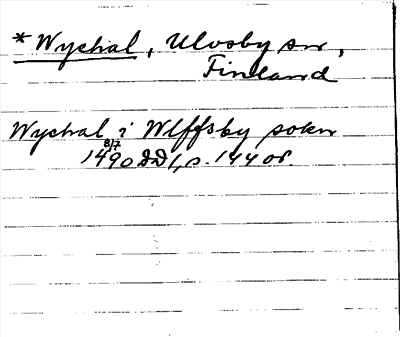 * Wychal, Ulvsby sn,
Finland
Wychal i Wlffsby sokn
8/7
1490 DD 1, s. 144 of.